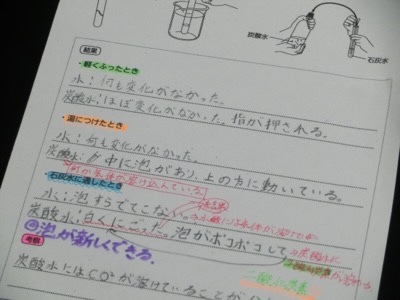 炭酸水
石灰水
結果
・軽くふったとき
水：何も変化がなかった。
炭酸水：ほぼ変化がなかった。指が押される。
・湯につけたとき
水：何も変化がなかった。
炭酸水：中に泡があり、上の方に動いている。
何か気体が溶け込んでいる。
・石灰水に通したとき
水：泡すらでてこない。
炭酸水：白くにごった。泡がボコボコして
泡が新しくできる。
考察
二酸化炭素
炭酸水にはCO²が溶けていることが